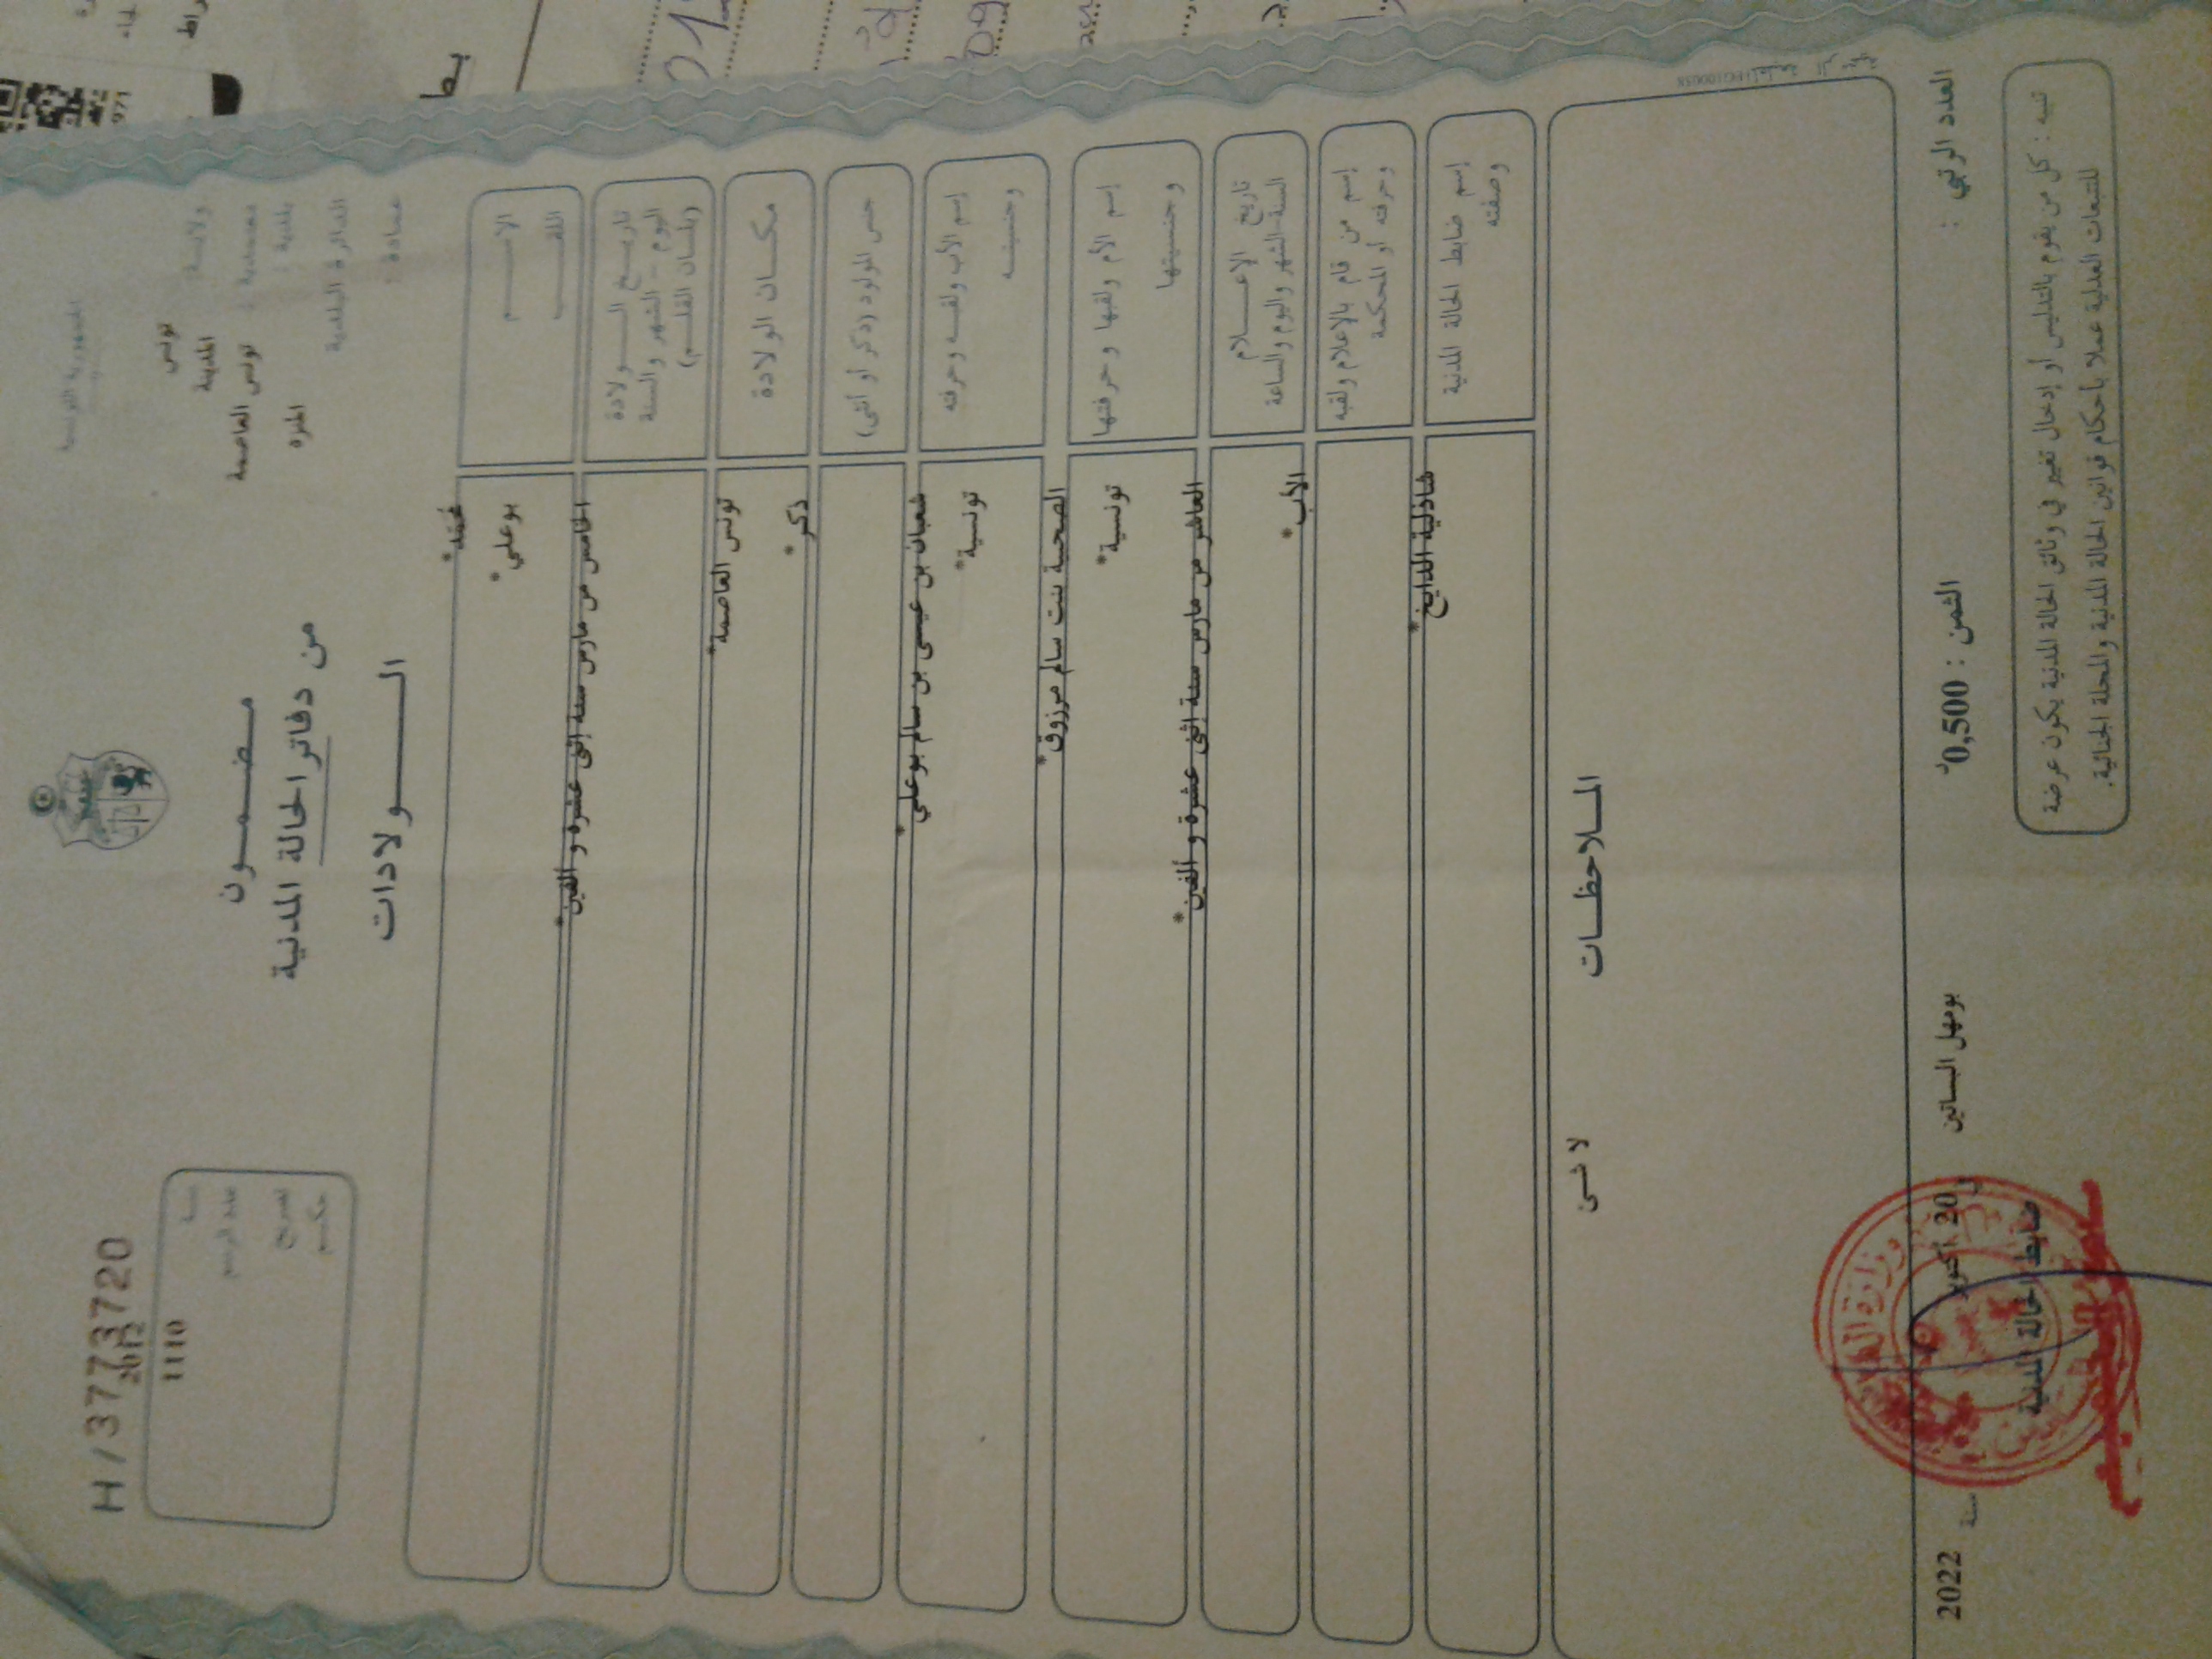 الجمهورية التونسية
H/3773720
2012
1110
سنة
عدد الرسم
تصريح
حكم
ولاية : تونس
معتمدية : المدينة
بلدية : تونس العاصمة
الدائرة البلدية : المنزه
عمادة :
مضمون
من دفاتر الحالة المدنية
الولادات
الاسم
محمد*
اللقب
بوعلي*
تاريخ الولادة
اليوم - الشهر والسنة
(بلسان القلم)
الخامس من مارس سنة إثنى عشرة و ألفين*
مكان الولادة
تونس العاصمة*
جنس المولود (ذكر أو أنثى)
ذكر*
إسم الأب ولقبه وحرفته
شعبان بن عيسى بن سالم بوعلي*
وجنسيته
تونسية*
إسم الأم ولقبها وحرفتها
الصحبية بنت سالم مرزوق*
وجنسيتها
تونسية*
تاريخ الإعلام
السنة والشهر واليوم والساعة
العاشر من مارس سنة إثنى عشرة و ألفين*
إسم من قام بالإعلام ولقبه
وحرفته أو المحكمة
الأب*
إسم ضابط الحالة المدنية
وصفته
شاذلية الدايخ*
الملاحظات
لا شئ
العدد الرتبي :
الثمن : 0,500د
بومهل البساتين في 20 أكتوبر سنة 2022
ضابط الحالة المدنية
تنبيه : كل من يقوم بالتدليس أو إدخال تغيير في وثائق الحالة المدنية يكون عرضة
للتتبعات العدلية عملا بأحكام قوانين الحالة المدنية والمجلة الجنائية.